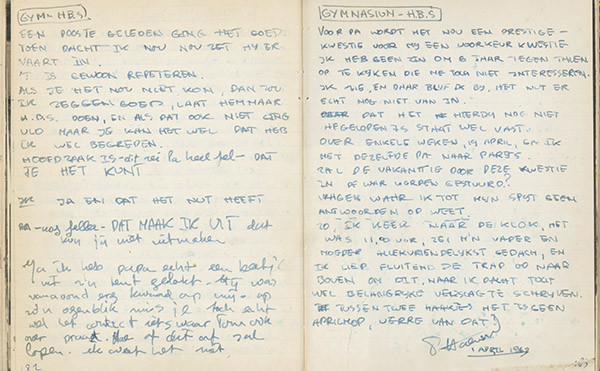 GYM- H.B.S.
EEN POOSJE GELEDEN GING HET GOED.
TOEN DACHT IK NOU NOU ZET HY ER
VAART IN.
'T IS GEWOON REPETEREN.
ALS JE HET NOU NIET KON, DAN ZOU
IK ZEGGEN GOED, LAAT HEM MAAR
H.B.S. DOEN, EN ALS DAT OOK NIET GING
ULO MAAR JE KAN HET WEL DAT HEB
IK WEL BEGREPEN.
HOOFDZAAK IS - dit zei Pa heel fel - DAT
JE HET KUNT
JA EN DAT HET NUT HEEFT
- nog feller - DAT MAAK IK UIT dat
kun jij niet uitmaken
Ja ik heb papa echt een beetje
uit z'n tent gelokt - Hij was
vanavond erg kwaad op mij - op
zo'n ogenblik mis je toch echt
wel het contact iets waar Tom ook
over praat. of dat ooit zal
lopen. ik weet het niet.
82
GYMNASIUM - H.B.S
VOOR PA WORDT HET NOU EEN PRESTIGE-
KWESTIE VOOR MY EEN VOORKEUR KWESTIE
IK HEB GEEN ZIN OM 6 JAAR TEGEN TALEN
OP TE KYKEN DIE ME TOCH NIET INTERESSEREN.
IK ZIE, EN DAAR BLYF IK BY, HET NUT ER
ECHT NOG NIET VAN IN.
DAT HET HIERBY NOG NIET
AFGELOPEN IS STAAT WEL VAST.
OVER ENKELE WEKEN, 19 APRIL, GA IK
MET DEZELFDE PA NAAR PARYS.
ZAL DE VAKANTIE DOOR DEZE KWESTIE
IN DE WAR WORDEN GESTUURD?
VRAGEN WAAR IK TOT MYN SPYT GEEN
ANTWOORDEN OP WEET.
ZO, IK KEEK NAAR DE KLOK, HET
WAS 11,00 UUR, ZEI M'N VADER EN
MOEDER ALLERVRIENDELYKST GEDAG, EN
IK LIEP FLUITEND DE TRAP OP NAAR
BOVEN OM DIT, NAAR IK DACHT TOCH
WEL BELANGRYKE VERSLAG TE SCHRYVEN.
TUSSEN TWEE HAAKJES HET IS GEEN
APRILMOP, VERRE VAN DAT
1 APRIL 1962